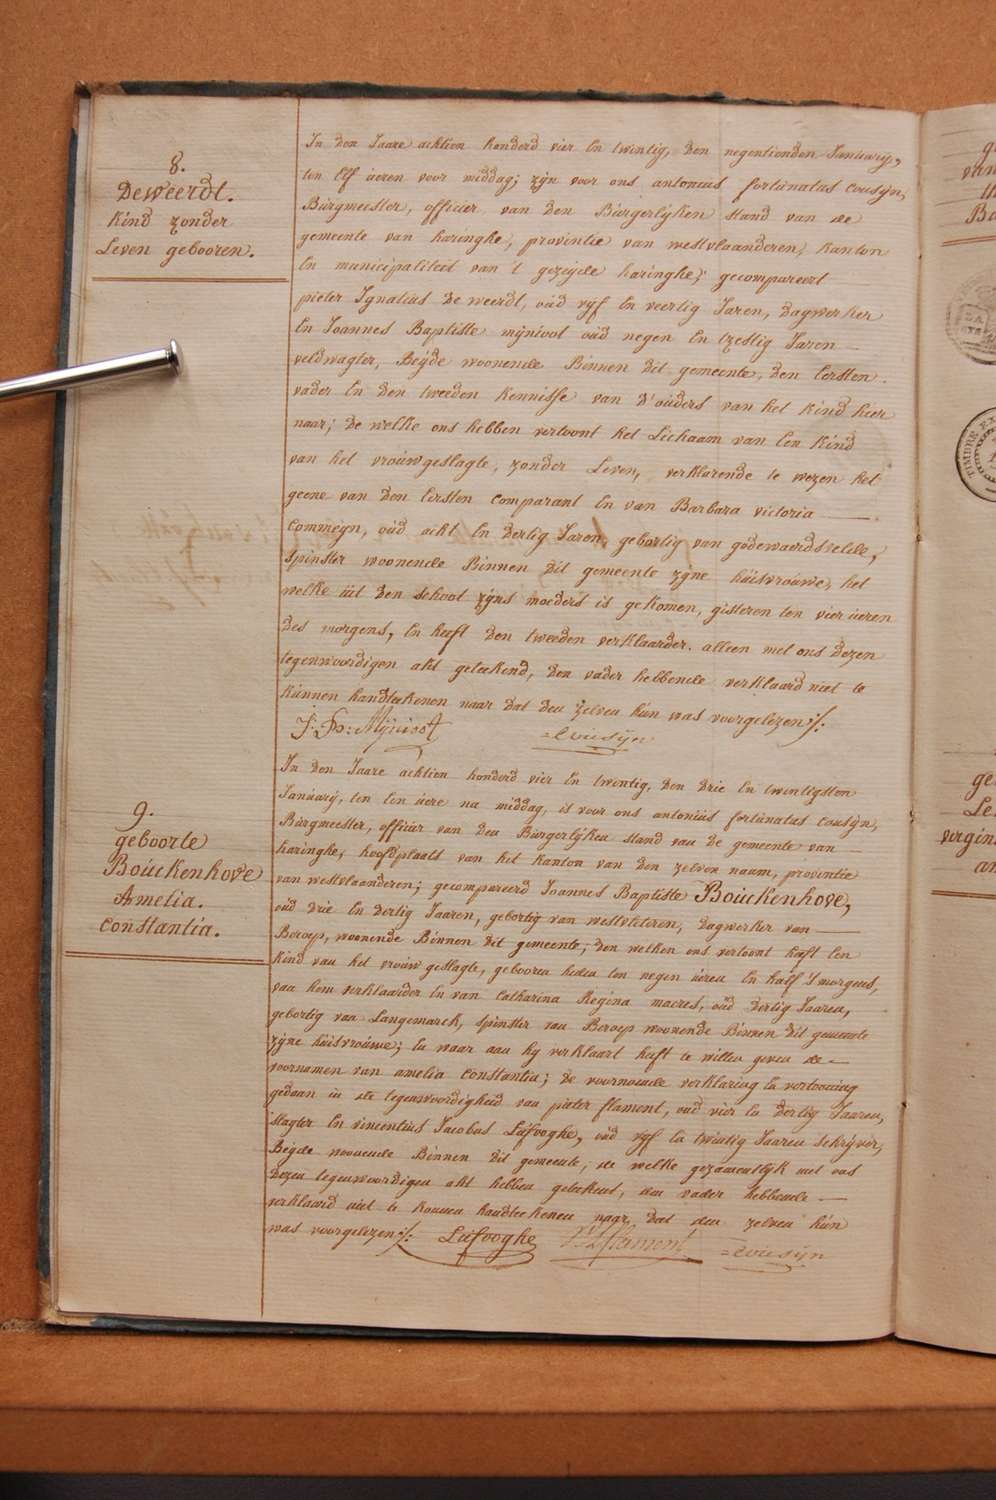 8.
Deweerdt.
Kind zonder
Leven gebooren.
In den Jaare achtien honderd vier En twintig, den negentienden January,
ten Elf ueren voor middag; zyn voor ons antonius fortunatus Cousyn,
Burgmeester, officier van den Burgerlyken stand van de
gemeente van haringhe, provintie van westvlaanderen, kanton
En municipaliteit van 't gezeyde haringhe; gecompareert
pieter Ignatius De weerdt, oud vyf En veertig Jaren, dagwerker
En Joannes Baptiste mynioot oud negen En tzestig Jaren
veldwagter, Beyde woonende Binnen dit gemeente, den Eersten
vader En den tweeden kennisse van d'ouders van het kind hier
naar; de welke ons hebben vertoont het Lichaam van Een kind
van het vrouwgeslagte, zonder Leven, verklarende te wezen het
geene van den Eersten comparant En van Barbara victoria
Commeyn, oud acht En dertig Jaren, gebortig van godewaersvelde,
spinster woonende Binnen dit gemeente zyne huisvrouwe, het
welke uit den schoot zyns moeders is gekomen, gisteren ten vier ueren
des morgens, En heeft den tweeden verklaarder alleen met ons dezen
tegenwoordigen akt geteekend, den vader hebbende verklaard niet te
kunnen handteekenen naar dat den zelven hun was voorgelezen ./.
J: B: Mynioot =Cousijn
9.
geboorte
Bouckenhove
Amelia.
Constantia.
In den Jaare achtien honderd vier En twintig, den drie En twintigsten
January, ten Een uere na middag, is voor ons antonius fortunatus Cousyn,
Burgmeester, officier van den Burgerlyken stand van de gemeente van
haringhe, hoofdplaats van het kanton van den zelven naam, provintie
van westvlaanderen; gecompareerd Joannes Baptiste Bouckenhove,
oud drie En dertig Jaaren, gebortig van westvleteren, dagwerker van
Beroep, woonende Binnen dit gemeente; den welken ons vertoont heeft Een
kind van het vrouwgeslagte, gebooren heden ten negen ueren En half 's morgens,
van hem verklaarder En van Catharina Regina macres, oud dertig Jaaren,
gebortig van Langemarck, spinster van Beroep woonende Binnen dit gemeente
zyne huisvrouwe; En waar aan hy verklaart heeft te willen geven de
voornamen van amelia Constantia; de voornoemde verklaring En vertooning
gedaan in de tegenwoordigheid van pieter flament, oud vier En dertig Jaaren,
slagter En vincentius Jacobus Lafooghe, oud vyf En twintig Jaaren schryver,
Beyde woonende Binnen dit gemeente; de welke gezamentlyk met ons
dezen tegenwoordigen akt hebben geteekent, den vader hebbende
verklaard niet te konnen handteekenen naar dat den zelven hun
was voorgelezen ./. Lafooghe flament =Cousijn